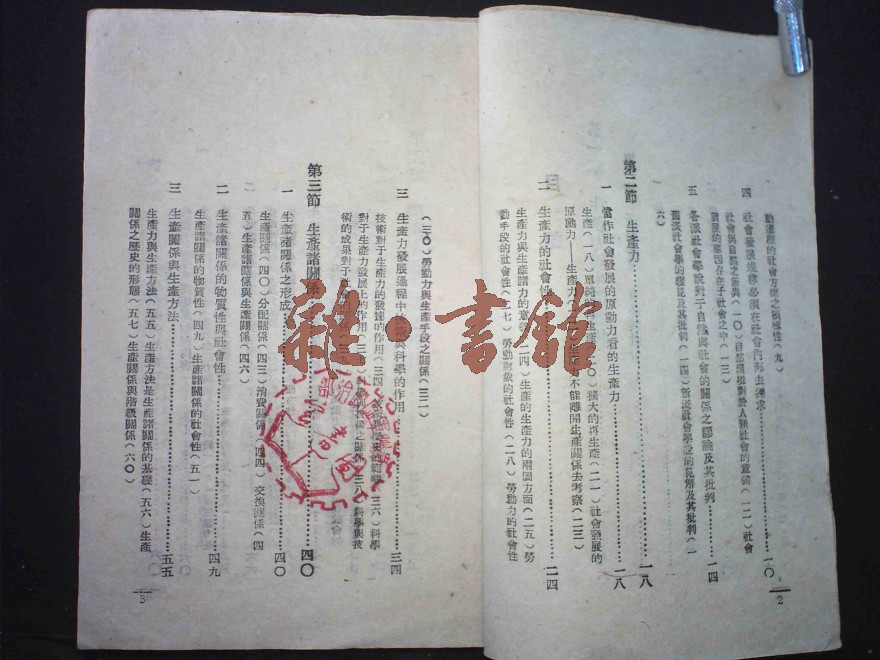 動過程的社會方面之積極性(九)
四 社會發展法律必須在社會內形去探求…………一〇
社會與自然之差異(一〇)自然環境對於人類社會的意義(一二)社會
發展的原因存在于社會之中(一三)
五 各派社會學說對于自然與社會的關係之謬論及其批判…………一四
舊派社會學的謬見及其批判(一四)新派社會學說的見解及其批判(一
六)
第二節 生產力…………一八
一 當作社會發展的原動力看的生產力…………一八
生產(一八)單純再生產(二〇)擴大的再生產(二一)社會發展的
原動力——生產力 不能離開生產關係去考察(二三)
二 生產力的社會性…………二四
生產力與生產諸力的意義(二四)生產的兩個方面(二五)勞
動手段的社會性(二七)勞動對象的社會性(二八)勞動力的社會性
2
(三〇)勞動力與生產手段之關係(三二)
三 生產力發展過程中 科學的作用…………三四
技術對于生產力的發達的作用(三四) (三六)科學
對于生產力發展上的作用 之關係(三八)科學與技
術的成果對于
第三節 生產諸關係…………四〇
一 生產諸關係之形成…………四〇
生產關係(四〇)分配關係(四三)消費關係(四四)交換關係(四
五)生產諸關係與生產關係(四六)
二 生產諸關係的物質性與社會性…………四九
生產諸關係的物質性(四九)生產諸關係的社會性(五一)
三 生產關係與生產方法…………五五
生產力與生產方法(五五)生產方法是生產諸關係的基礎(五六)生產
關係之歷史的形態(五七)生產關係與階級關係(六〇)
3
雜·書館